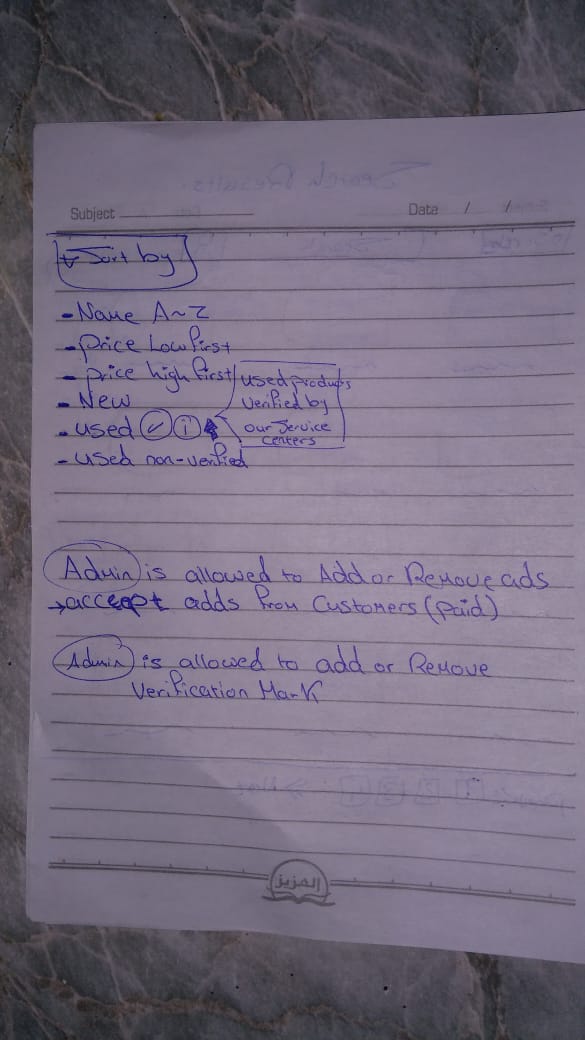 Subject
Data / /
Sort by
- Name A~Z
- Price Low first
- price high first
- New
- used ✓ i
used products
verified by
our Service
centers
- used non-verified
Admin is allowed to Add or Remove ads
→ accept adds from Customers (paid)
Admin is allowed to add or Remove
Verification Mark
المزيز